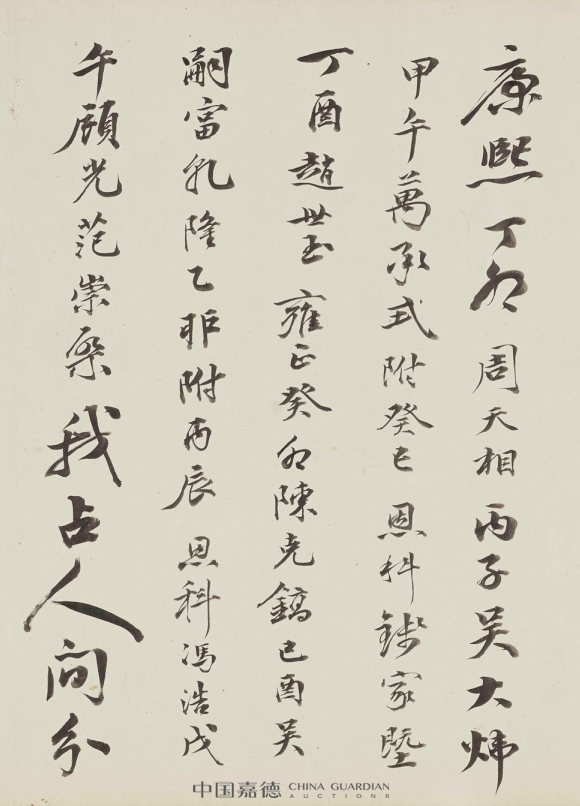 康熙丁卯周天相丙子吴大炜
甲午萬承式附癸巳恩科錢家塈
丁酉趙世玉雍正癸卯陳克鎬己酉吴
嗣富乾隆乙卯附丙辰恩科馮浩戊
午顧光范崇棨我占人间分
中国嘉德 CHINA GUARDIAN
AUCTIONS